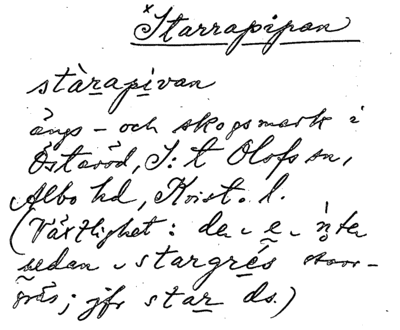 ×Starrapipan
stàrapivan
ängs- och skogsmark i
Östaröd, S:t Olofs sn,
Albo hd, Krist. l.
(Växtlighet: de e inte
sedan stargrés starr-
gräs; jfr star ds.)